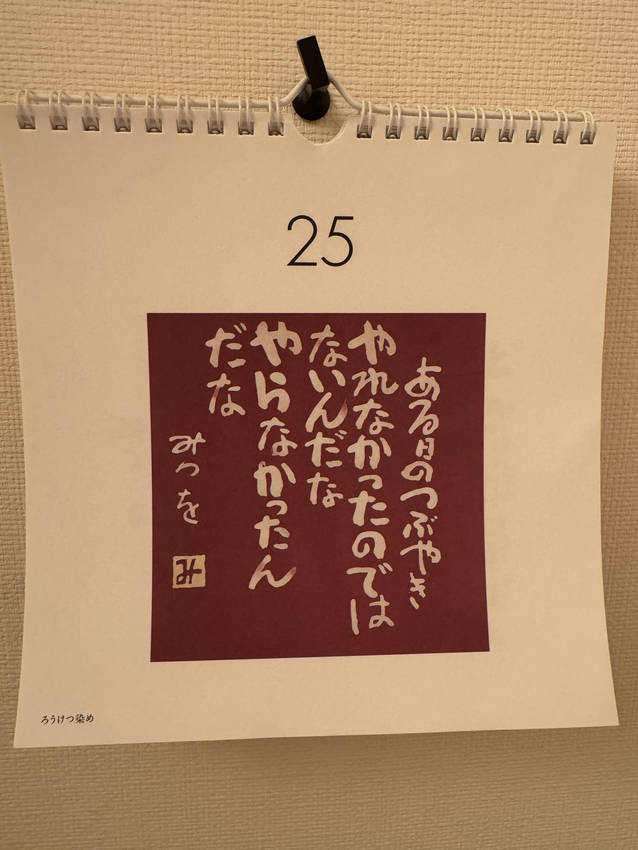 25
ある日のつぶやき
やれなかったのでは
ないんだな
やらなかったん
だな
みつを
み
ろうけつ染め